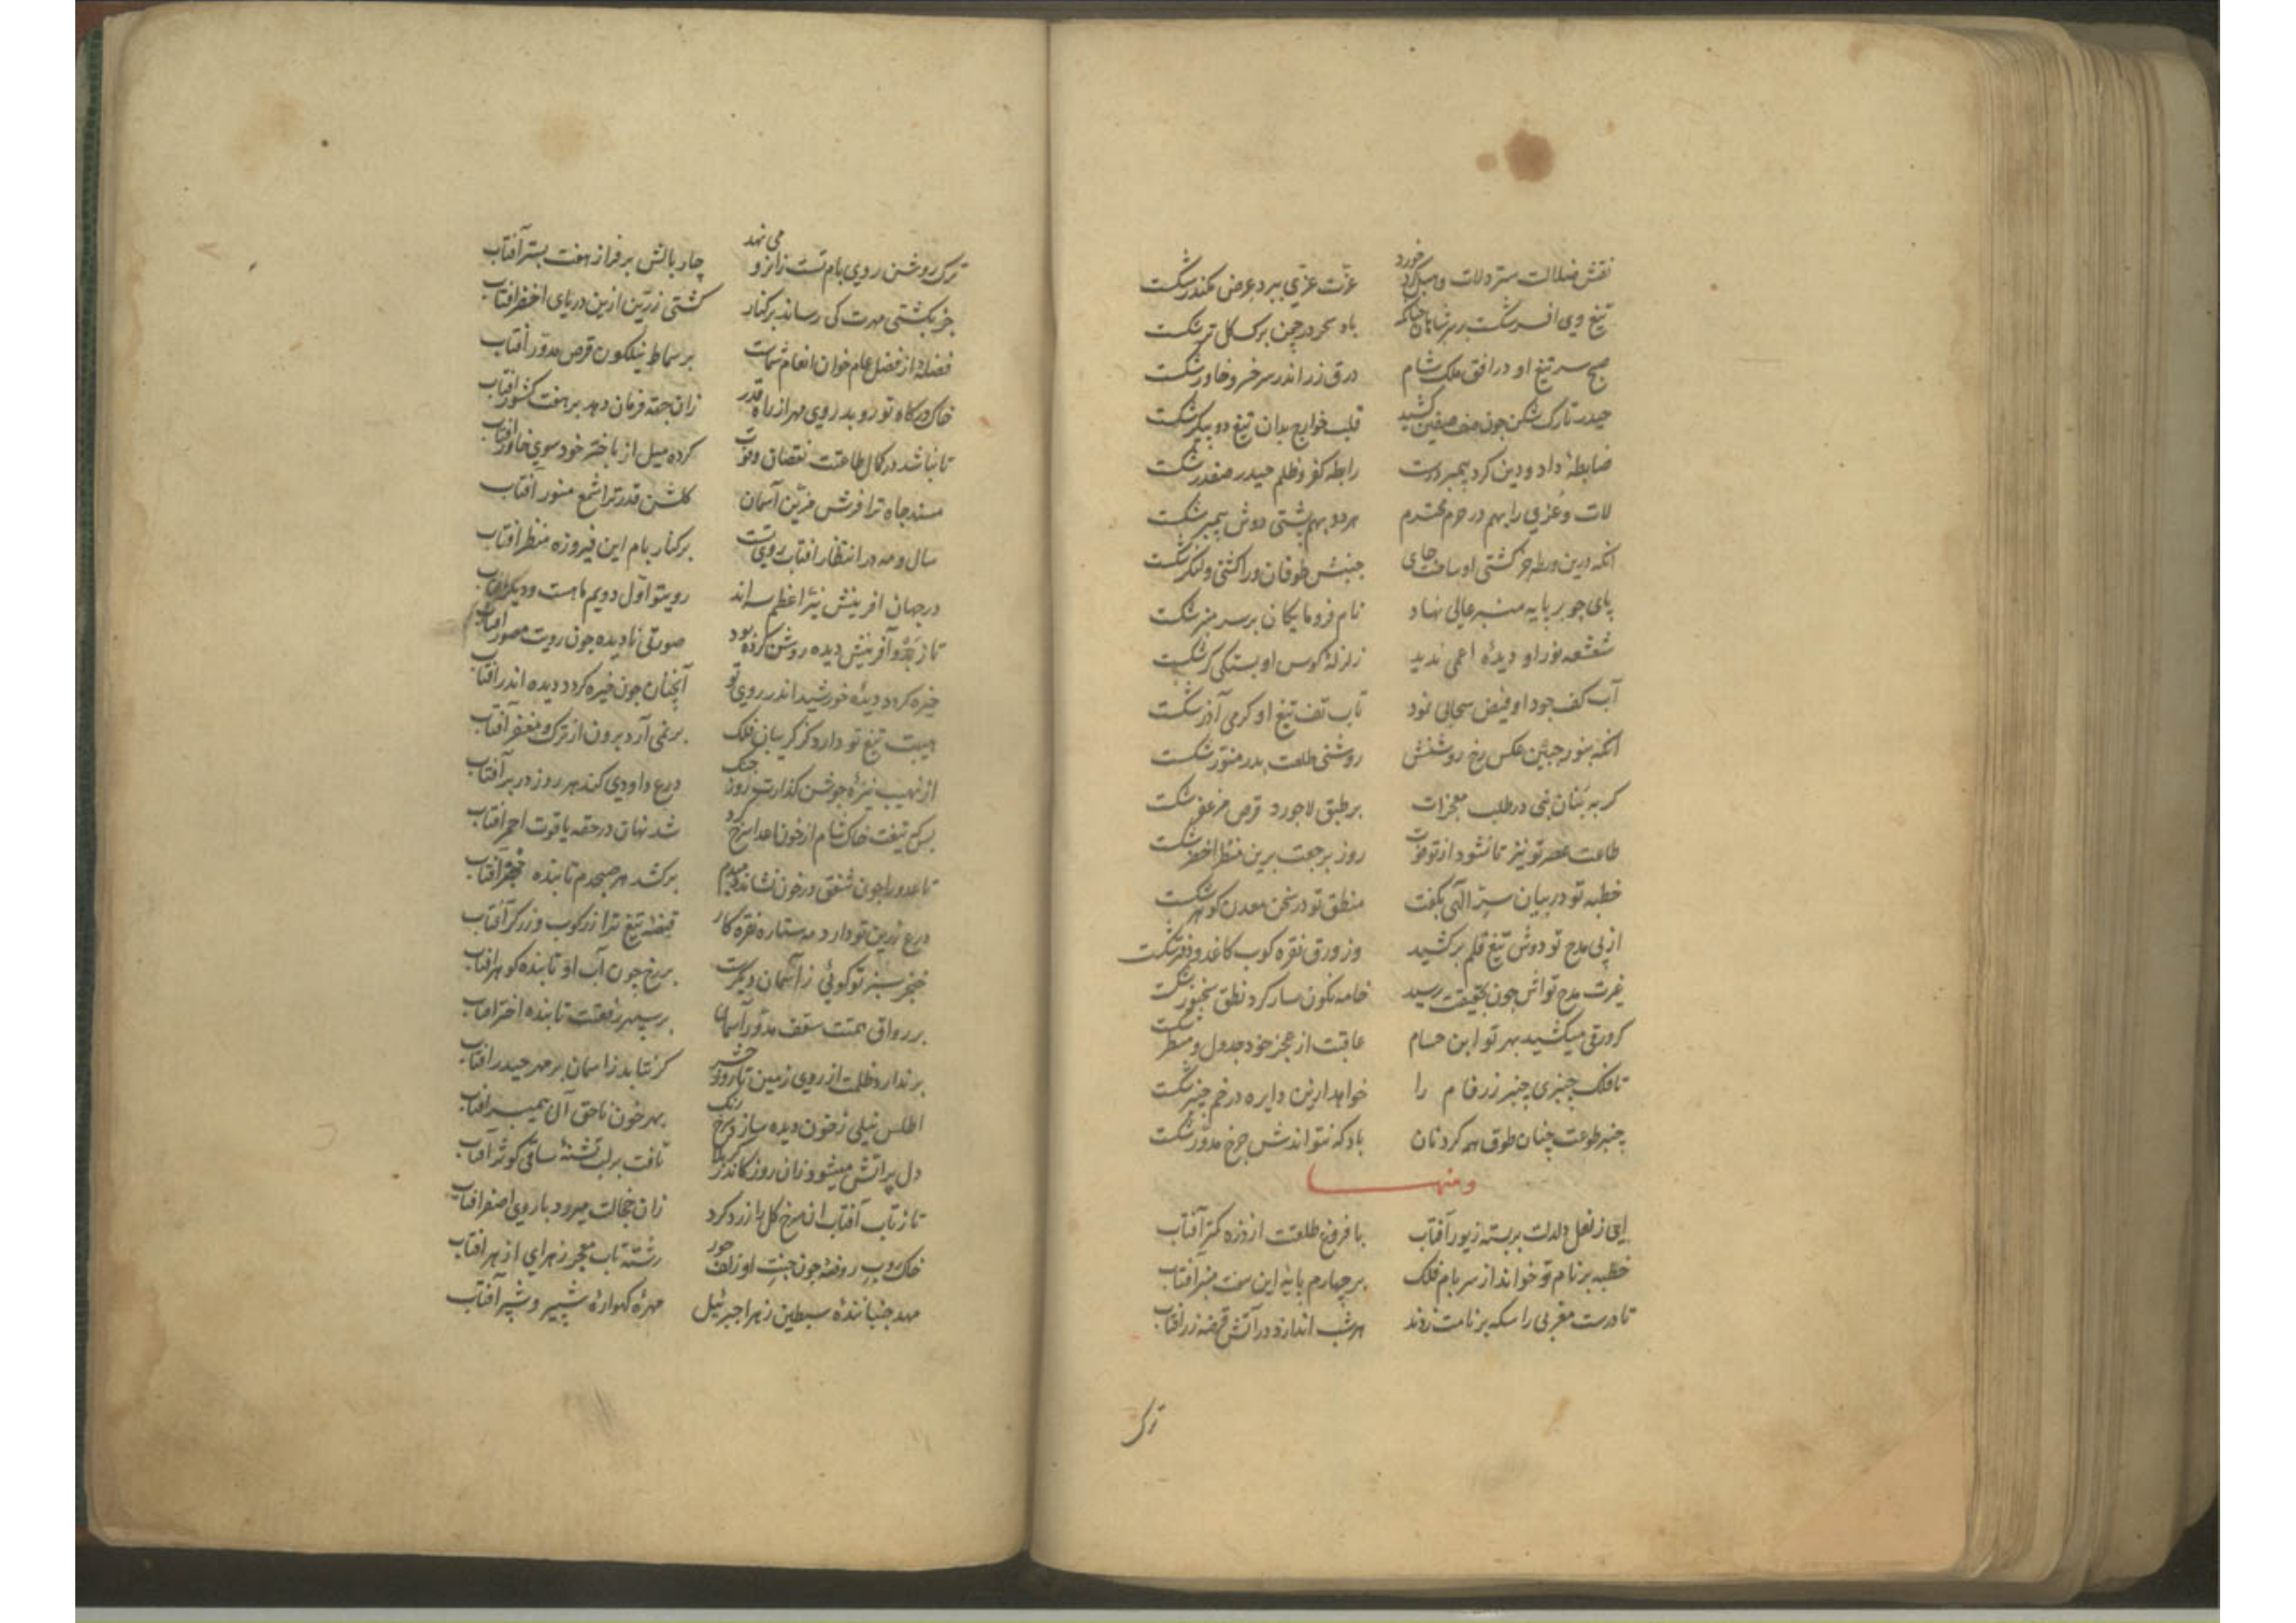 نقش ضلالت سترد لات و هبل کرد خورد    عزت عزی ببرد عرض سکندر شکست
تیغ وی افسر شکست بر سر شاهان چنانکه    باد سحر در چمن برک کل تر شکست
صبح سر تیغ او در افق ملک شام    ورق زر اندر سر خسرو خاور شکست
حیدر تارک شکن چون صف صفین کشید    قلب خوارج بدان تیغ دو پیکر شکست
ضابطهٔ داد و دین کرد پیمبر درست    رابطه کفر و ظلم حیدر صفدر شکست
لات و عزی را بهم در حرم محترم    هر دو بهم پشتی دوش پیمبر شکست
انکه درین ورطه جز کشتی او ساخت جای    جنبش طوفان ورا کشتی و لنکر شکست
پای چو بر پایه منبر عالی نهاد    نام فرومایکان بر سر منبر شکست
شعشعه نور او دیدهٔ اعمی ندید    زلزلهٔ کوس او بستکی کر شکست
آب کف جود او فیض سحابی نمود    تاب تف تیغ او کرمی آذر شکست
انکه بنور جبین عکس رخ روشنش    روشنی طلعت بدر منور شکست
کر به بنان نبی در طلب معجزات    بر طبق لاجورد قرص مزعفر شکست
طاعت عصر تو نیز تا نشود از تو فوت    روز برجعت برین منظر اخضر شکست
خطبه تو در بیان سر الهی بکفت    منطق تو در سخن معدن کوهر شکست
از پی مدح تو دوش تیغ قلم برکشید    وز ورق نقره کوب کاغد و دفتر شکست
غیرت مدح تواش چون بحقیقت رسید    خامه نکون سار کرد نطق سخنور شکست
کر ورقی میکشید بهر تو ابن حسام    عاقبت از عجز خود جدول و مسطر شکست
تا فلک چنبری چنبر زرفام را    خواهد ازین دایره در خم چنبر شکست
چنبر طوعت چنان طوق همه کردنان    باد که نتواندش چرخ مدور شکست
ومنها
ای ز نعل دلدلت بربسته زیور آفتاب    با فروغ طلعتت از ذره کمتر آفتاب
خطبه بر نام تو خواند از سر بام فلک    بر چهارم پایهٔ این سخت منبر آفتاب
تا درست مغربی را سکه بر نامت زدند    هر شب اندازد در آتش قرصه زر افتاب
ترک
ترک روشن روی بام تست زانرو می نهد    چار بالش بر فراز هفت بستر آفتاب
جز بکشتی مهرت کی رساند بر کنار    کشتی زرین ازین دریای اخضر افتاب
فضلهٔ از فضل عام خوان انعام شماست    بر سماط نیلکون قرص مدور آفتاب
خاک درکاه تو روبد روی مهر از راه قدر    زان جهة فرمان دهد بر هفت کشور افتاب
تا نباشد در کمال طاعتت نقصان و فوت    کرده میل از باختر خود سوی خاور افتاب
مسند جاه ترا فرش مزین آسمان    کلشن قدر ترا شمع منور آفتاب
سال و مه در انتظار افتاب روی تست    بر کنار بام این فیروزه منظر افتاب
در جهان افرینش نیر اعظم سه اند    رویتو اول دویم ماهست و دیکر افتاب
تا ز بدو آفرینش دیده روشن کرده بود    صورتی نادیده چون رویت مصور افتاب
خیره کردد دیدهٔ خورشید اندر روی تو    آنچنان چون خیره کردد دیده اندر افتاب
هیبت تیغ تو دارد کز کریبان فلک    بر نمی آرد برون از ترک و مغفر آفتاب
از نهیب نیزهٔ جوشن کذارت روز جنک    درع داودی کند هر روز در بر آفتاب
بس که تیغت خاک شام از خون اعدا سرخ کرد    شد نهان در حقه یاقوت احمر افتاب
تا عدو را چون شفق در خون نشاند دمبدم    برکشد هر صبحدم تابنده خنجر آفتاب
درع زرین تو دارد مه ستاره نقره کار    قبضهٔ تیغ ترا زرکوب و زرکر آفتاب
خنجر سبز تو کوئی ز آسمان دیکرست    بر رخ چون آب او تابنده کوهر افتاب
بر رواق همتت سقف مدور آسمان    بر سپهر رفعتت تابنده اختر افتاب
بر ندارد ظلمت از روی زمین تا روز حشر    کر نتابد ز اسمان بر مهر حیدر افتاب
اطلس نیلی ز خون دیده سازد سرخ رنک    بهر خون ناحق آل پیمبر افتاب
دل پر آتش میشود زان روز کاندر کربلا    تافت بر لب تشنهٔ ساقی کوثر آفتاب
تا ز تاب آفتاب ان سرخ کل را زرد کرد    زان خجالت میرود با روی اصفر افتاب
خاک روب روضهٔ چون جنت او زلف حور    رشته تاب معجر زهرای ازهر افتاب
مهد جنبانندهٔ سبطین زهرا جبرئیل    مهرهٔ کهوارهٔ شبیر و شبر آفتاب